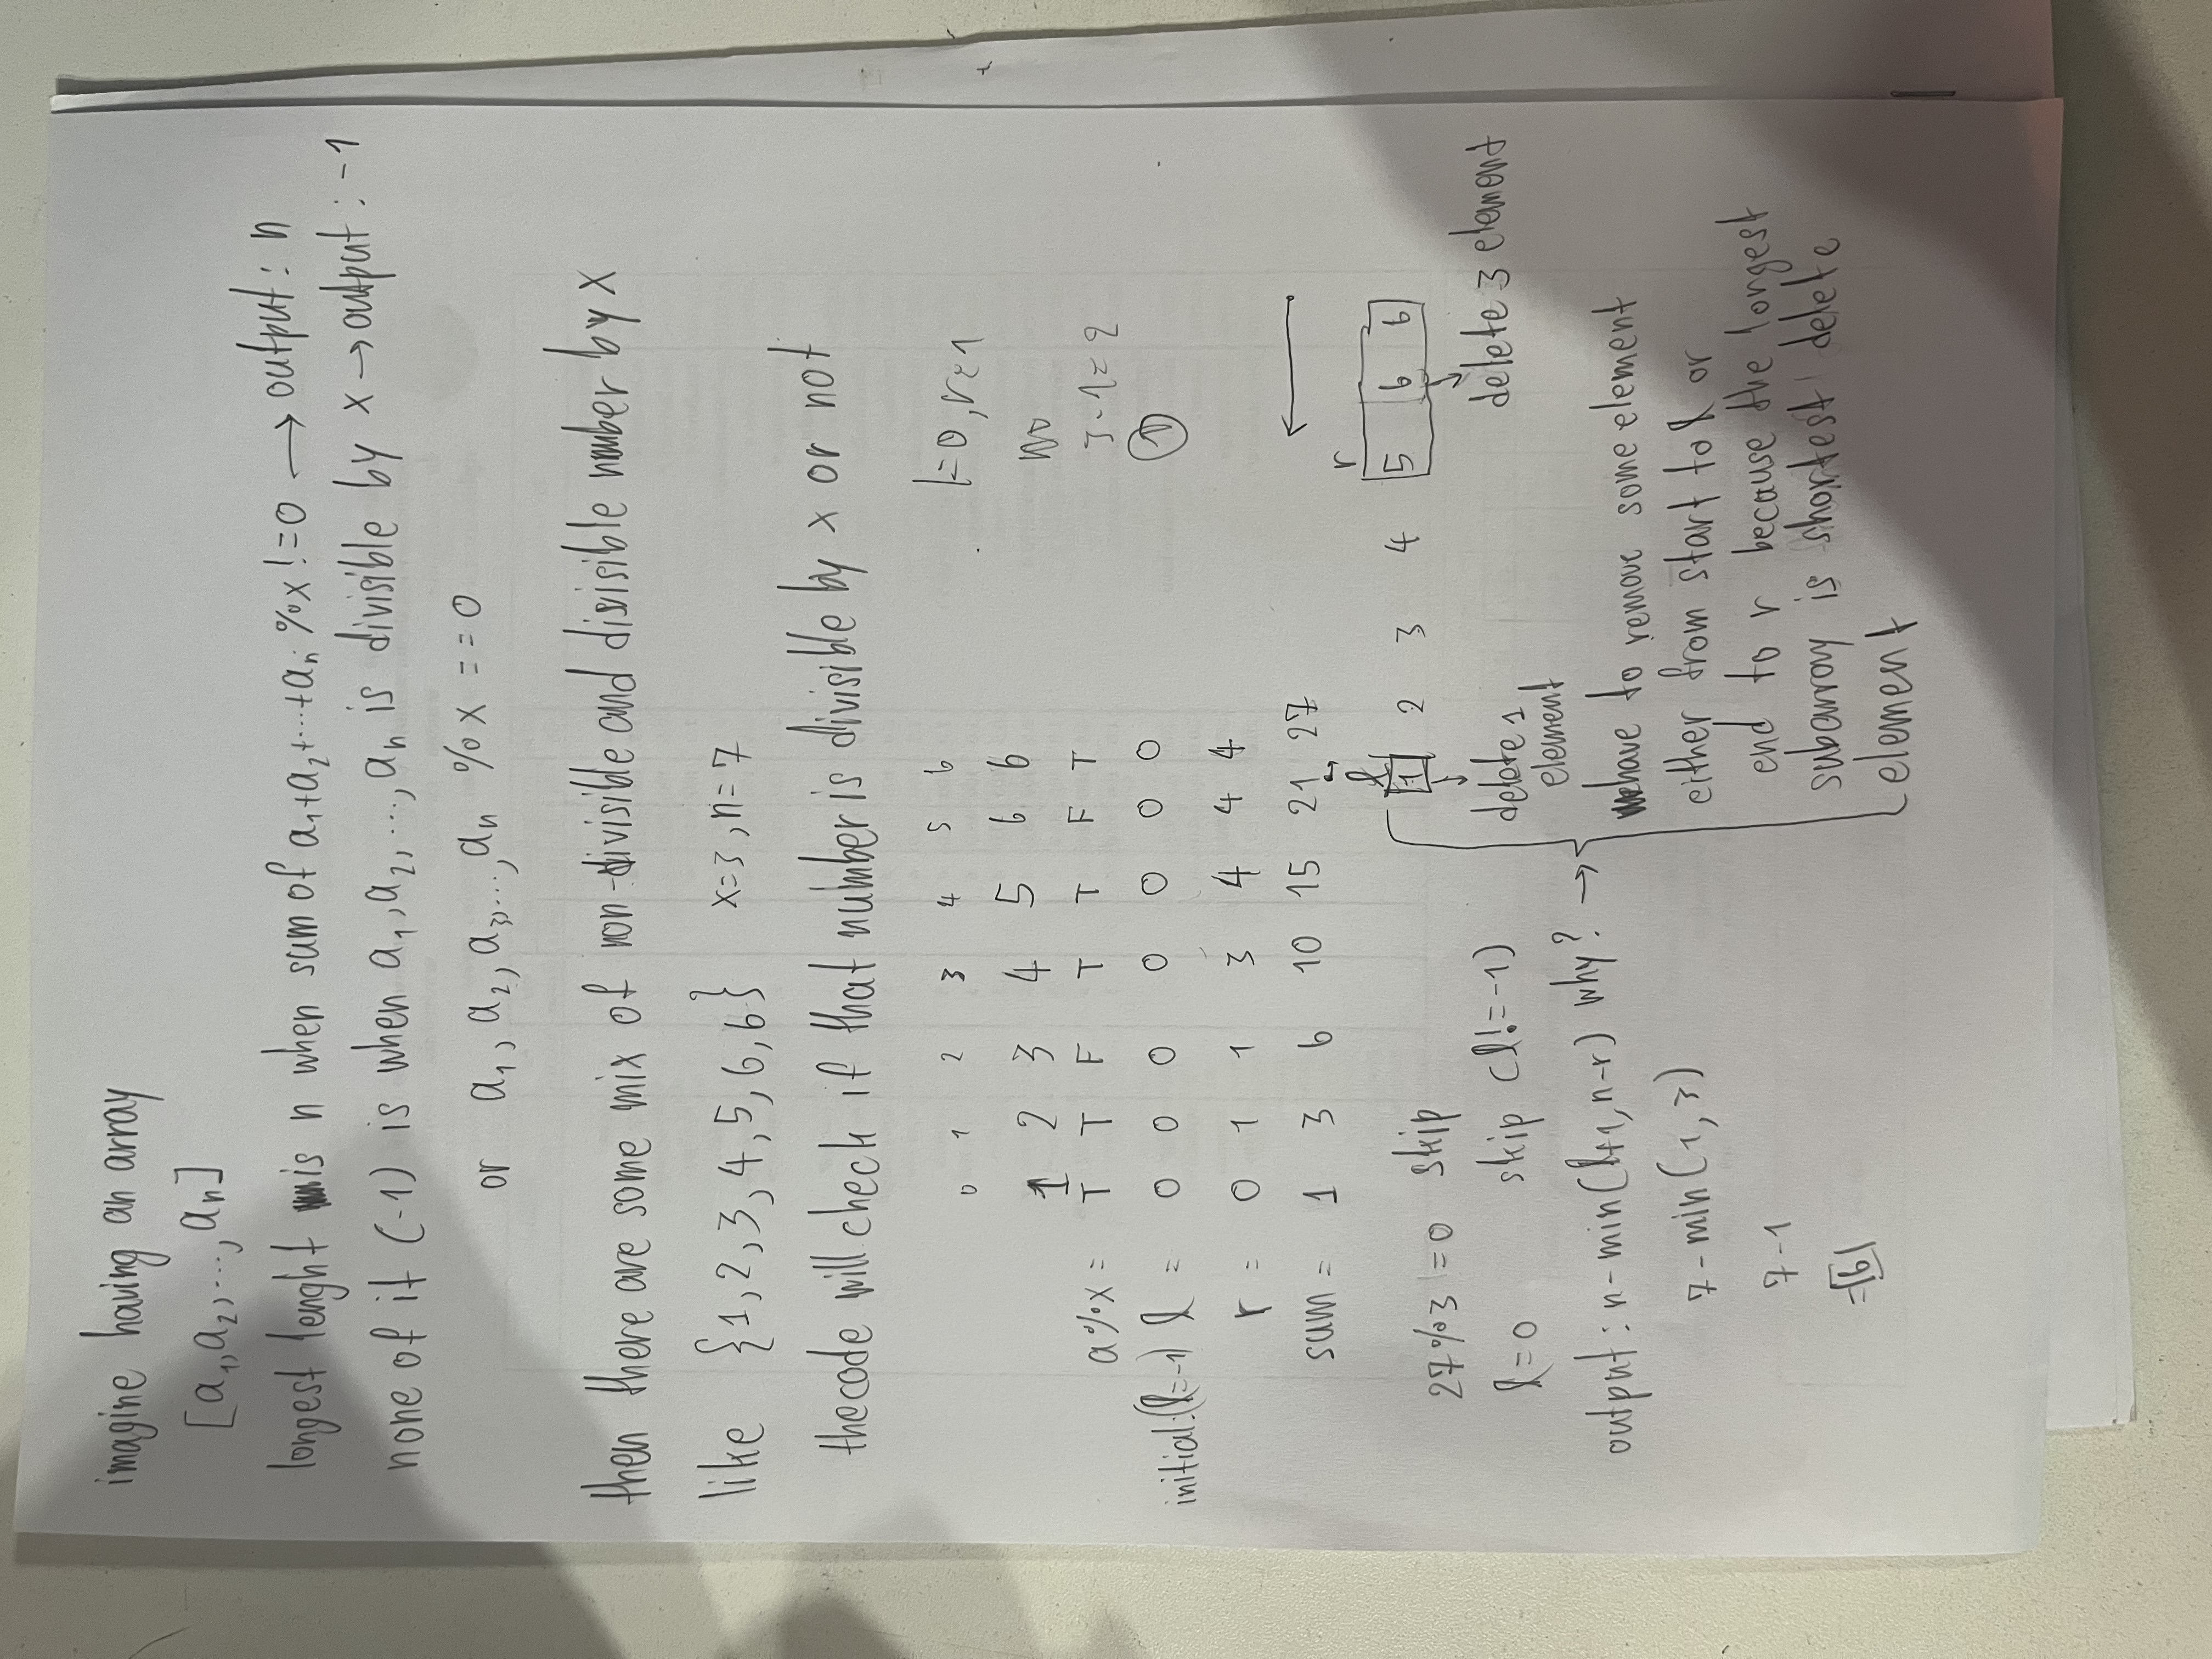 imagine having an array
[a₁,a₂,...,aₙ]
longest lenght is n when sum of a₁+a₂+...+aₙ %x !=0 → output : n
none of it (-1) is when a₁,a₂,...,aₙ is divisible by x → output : -1
or a₁, a₂, a₃,...,aₙ %x ==0
then there are some mix of non-divisible and divisible number by x
like {1,2,3,4,5,6,6} x=3, n=7
the code will check if that number is divisible by x or not
0 1 2 3 4 5 6
1 2 3 4 5 6 6
a%x = T T F T T F T
initial:(l=-1) l = 0 0 0 0 0 0 0
r = 0 1 1 3 4 4 4
sum = 1 3 6 10 15 21 27
l=0, r=1
no
3-1=2
1
27%3 !=0 skip
l=0 skip (l!=-1)
output: n-min(l+1,n-r) why? →
7-min(1,3)
7-1
=6
l r
1 2 3 4 5 6 6
delete 1 element
delete 3 element
have to remove some element
either from start to l or
end to r because the longest
subarray is shortest delete
element